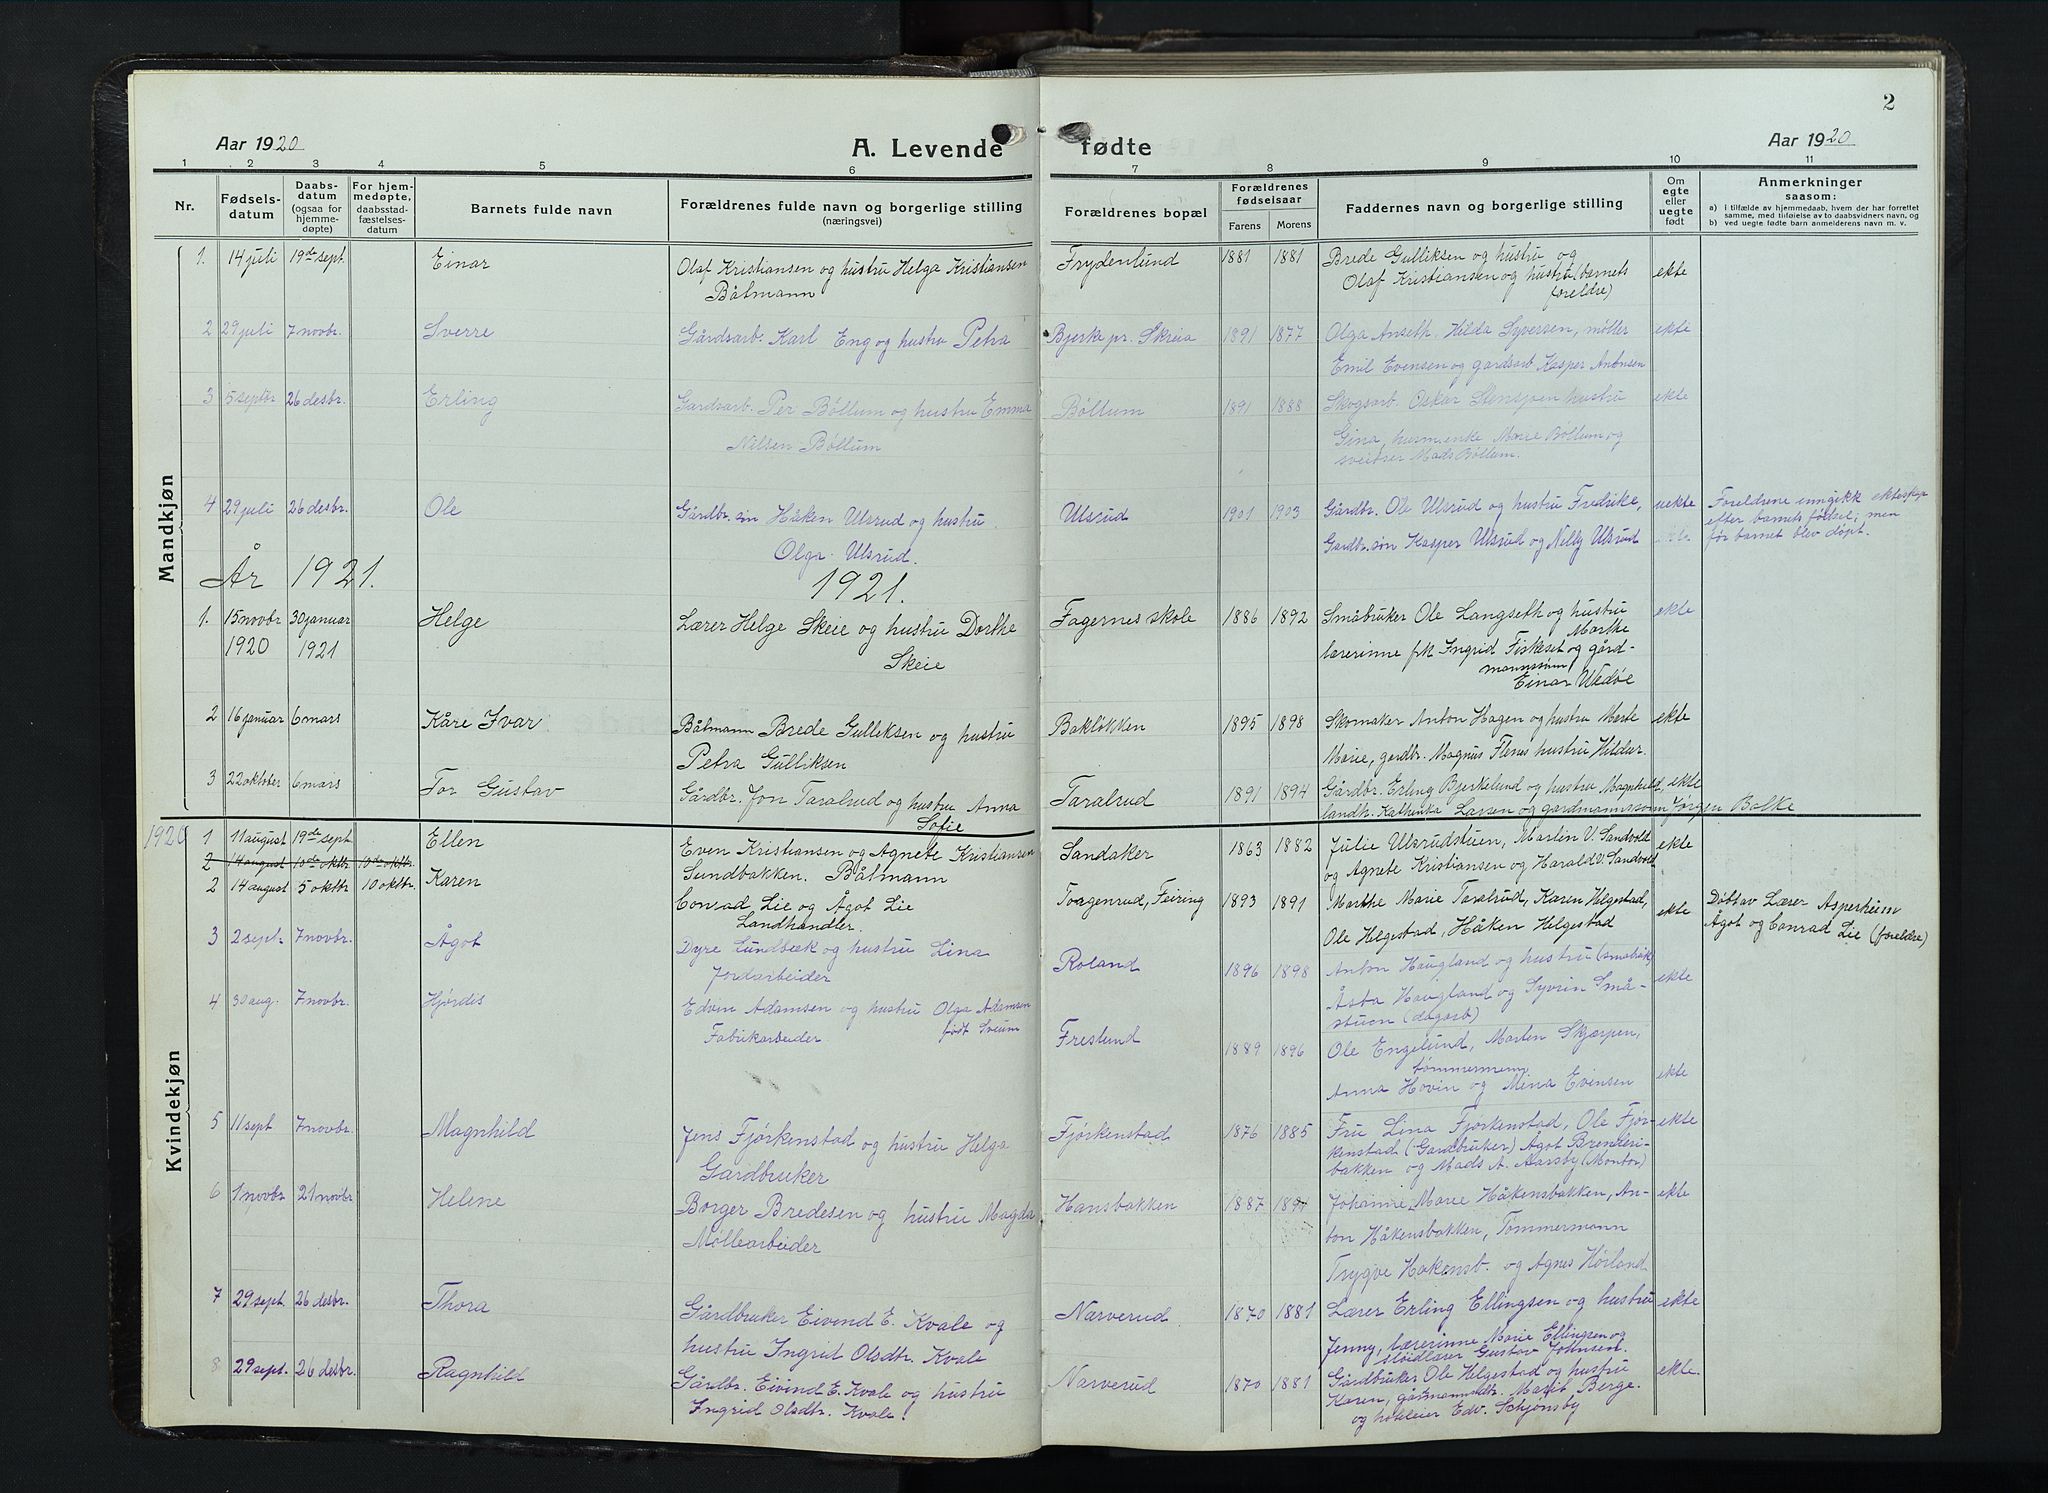 2
Aar 1920
A. Levende fødte
Aar 1920
1 2 3 4 5 6 7 8 9 10 11
Nr.
Fødsels-
datum
Daabs-
datum
(ogsaa for
hjemme-
døpte)
For hjem-
medøpte,
daabsstad-
fæstelses-
datum
Barnets fulde navn
Forældrenes fulde navn og borgerlige stilling
(næringsvei)
Forældrenes bopæl
Forældrenes
fødselsaar
Farens Morens
Faddernes navn og borgerlige stilling
Om
egte
eller
uegte
født
Anmerkninger
saasom:
a) i tilfælde av hjemmedaab, hvem der har forrettet
samme, med tilføielse av to daabsvidners navn, og
b) ved uegte fødte barn anmelderens navn m. v.
Mandkjøn
1. 14 juli 19de sept. Einar Olaf Kristiansen og hustru Helga Kristiansen Frydenlund 1881 1881 Brede Gulliksen og hustru og ekte
Båtmann Olaf Kristiansen og hustru (barnets
foreldre)
2 29 juli 7 novbr. Sverre Gårdsarb. Karl Eng og hustru Petra Bjerke pr. Skreia 1891 1877 Olga Anseth. Hilda Syversen, møller ekte
Emil Evensen og gardsarb Kasper Antonsen
3 5 septbr 26 desbr. Erling Gardsarb. Per Bøllum og hustru Emma Bøllum 1891 1888 Skogsarb. Oskar Stensjøen hustru ekte
Nilsen-Bøllum Gina, husm.enke Marie Bøllum og
sveitser Mads Bøllum.
4 29 juli 26 desbr. Ole Gårdbr. søn Håken Ulsrud og hustru Ulsrud 1901 1903 Gårdbr. Ole Ulsrud og hustru Fredrikke, uekte Foreldrene inngikk ekteskap
Olga Ulsrud. Gardbr. søn Kasper Ulsrud og Nelly Ulsrud efter barnets fødsel; men
før barnet blev døpt.
År 1921. 1921.
1. 15 novbr 30 januar Helge Lærer Helge Skeie og hustru Dorthe Fagernes skole 1886 1892 Småbruker Ole Langseth og hustru ekte
1920 1921 Skeie Marthe
lærerinne frk Ingrid Fiskeset og gård-
mannssønn
Einar Wedøe
2 16 januar 6 mars Kåre Ivar Båtmann Brede Gulliksen og hustru Bakløkken 1895 1898 Skomaker Anton Hagen og hustru Marte ekte
Petra Gulliksen Marie, gardbr. Magnus Flenes hustru Hildur.
3 22 oktober 6 mars Tor Gustav Gårdbr. Jon Taralrud og hustru Anna Taralrud 1891 1894 Gårdbr. Erling Bjerkelund og hustru Magnhild, ekte
Sofie landh. Kathinka Larsen og gardmannssønn Jørgen Bolke
Kvindekjøn
1920 1 11 august 19de sept Ellen Even Kristiansen og Agnete Kristiansen Sandaker 1863 1882 Julie Ulsrudstuen, Martin V. Sandvold ekte
Sundbakken. Båtmann og Agnete Kristiansen og Harald V. Sandvold
2 14 august 10de oktbr. 10de oktbr.
2 14 august 5 oktbr 10 oktbr. Karen Conrad Lie og Ågot Lie Tragenrud, Feiring 1893 1891 Marthe Marie Taralrud, Karen Helgestad, ekte Døbt av Lærer Asperheim
Landhandler. Ole Helgestad, Håken Helgestad Ågot og Conrad Lie (foreldre)
3 2 sept. 7 novbr. Ågot Dyre Lundbæk og hustru Lina Roland 1896 1898 Anton Haugland og hustru (småbruk) ekte
Jordarbeider Åsta Haugland og Syvrin Små-
stuen (dagarb)
4 30 aug. 7 novbr. Hjørdis Edvin Adamsen og hustru Olga Adamsen Freslund 1889 1896 Ole Engelund, Marten Skjærpen, ekte
Fabrikarbeider født Sveum tømmermenn
Anna Hovin og Mina Evensen
5 11 sept 7 novbr. Magnhild Jens Fjørkenstad og hustru Helga Fjørkenstad 1876 1885 Fru Lina Fjørkenstad, Ole Fjør- ekte
Gardbruker kenstad (Gardbruker) Ågot Brenderi-
bakken og Mads A. Aarsby (Montør)
6 1 novbr 21 novbr Helene Borger Bredesen og hustru Magda Hansbakken 1887 Johanne Marie Håkensbakken, An- ekte
Møllearbeider ton Håkensbakken, Tømmermann
Trygve Håkensb. og Agnes Høiland
7 29 sept. 26 desbr. Thora Gårdbruker Eivend E. Kvale og Narverud. 1870 1881 Lærer Erling Ellingsen og hustru ekte
hustru Ingrid Olsdtr. Kvale Jenny, lærerinne Marie Ellingsen og
sløidlærer Gustav Johnsen.
8 29 sept. 26 desbr. Ragnhild Gårdbr. Eivind E. Kvale og hustru Narverud 1870 1881 Gårdbruker Ole Helgestad og hustru ekte.
Ingrid Olsdtr. Kvale. Karen, gårdmannsdtr. Marit Berge.
og hoteleier Edv. Schjønsby